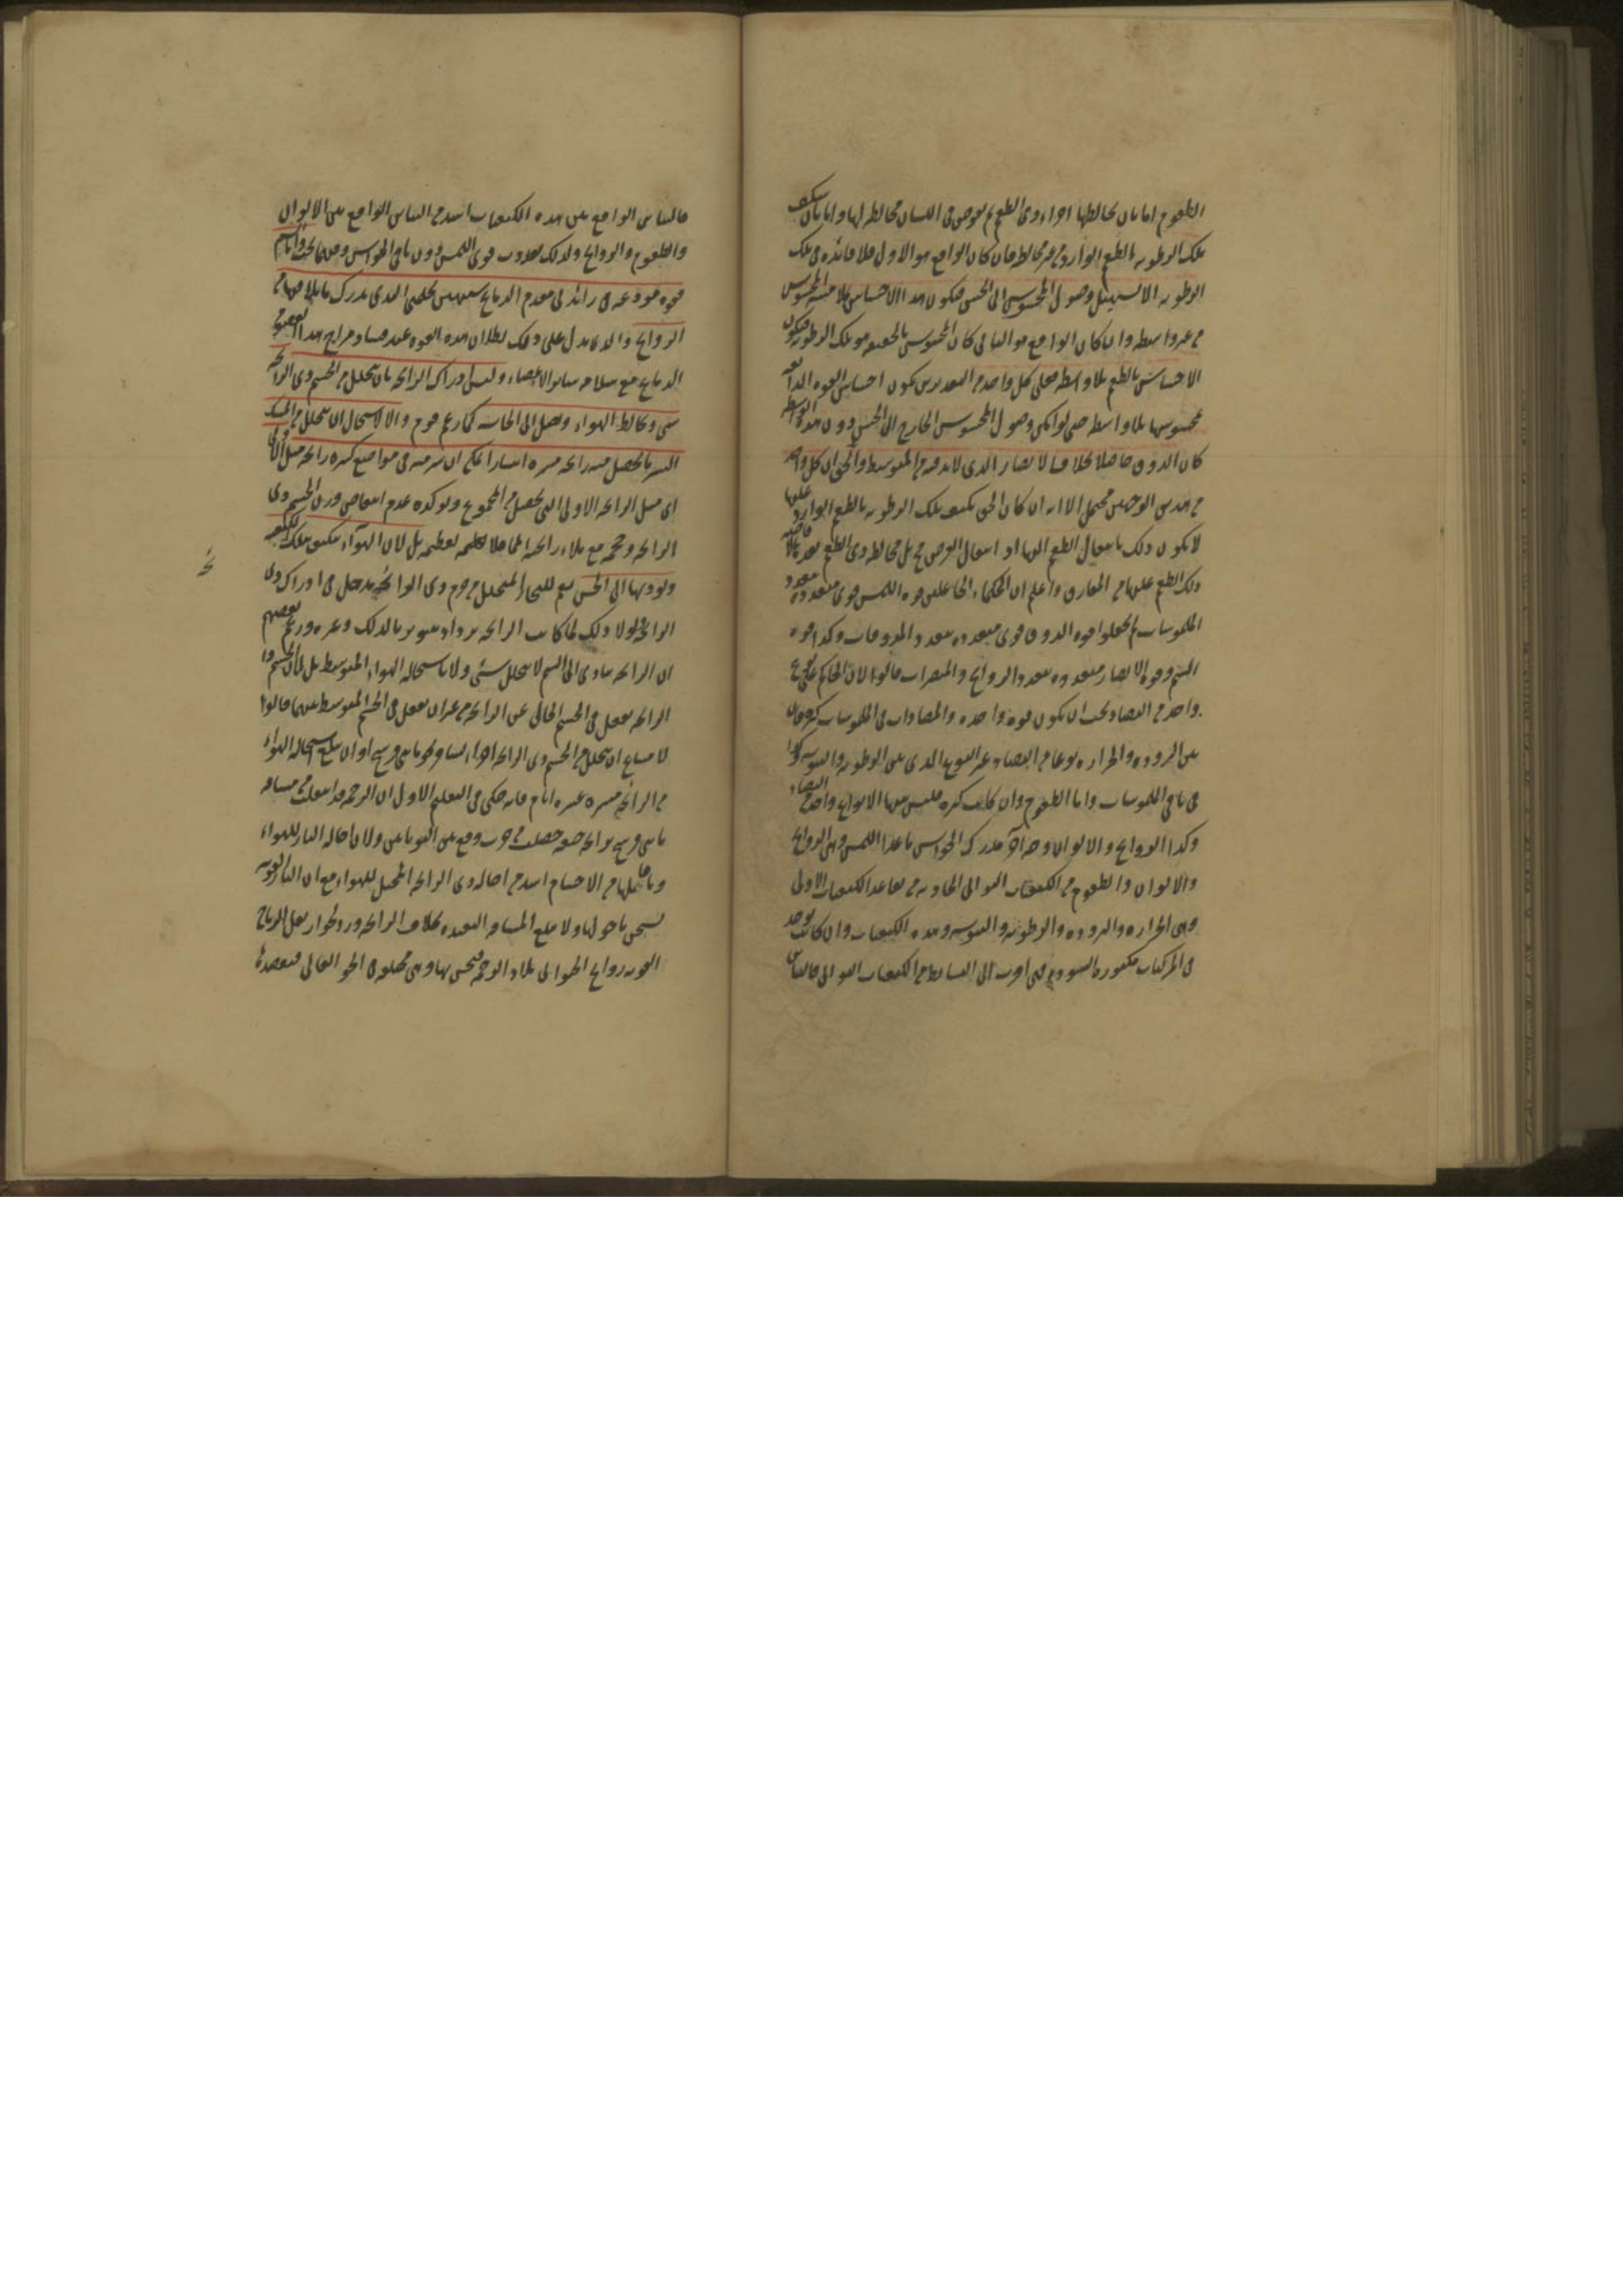 الطعوم اما بان يخالطها اجزاء ذى الطعم ثم يغوص فى اللسان مخالطه لها واما بان يتكيف
تلك الرطوبه بالطعم الوارد من غير مخالطه فان كان الواقع هو الاول فلا فائده فى تلك
الرطوبه الا تسهيل وصول المحسوس الى الحس فيكون هذا الاحساس بملامسه المحسوس
من غير واسطه واما كان الواقع هو الثانى كان المحسوس بالحقيقه هو تلك الرطوبه فيكون
الاحساس بالطعم بلا واسطه فعلى كل واحد من التقديرين يكون احساس القوه الذائقه
محسوسها بلا واسطه حتى لو امكن وصول المحسوس الخارج الى الحس دون هذه الواسطه
كان الذوق حاصلا بخلاف الابصار الذى لابد فيه من المتوسط والحق ان كل واحد
من هذين الوجهين محتمل الا انه ان كان الحق تكيف تلك الرطوبه بالطعم الوارد عليها
لا يكون ذلك بانتقال الطعم اليها اذ انتقال العرض مح بل مخالطه ذى الطعم
ذلك الطعم عليها من المفارق واعلم ان الحكماء الجاعلين قوه اللمس قوى متعدده بتعدد
الملموسات لم يجعلوا قوه الذوق قوى متعدده بتعدد المذوقات وكذا قوه
الشم وقوه الابصار متعدده بتعدد الروائح والمبصرات قالوا لان الحاكم على نوع
واحد من التضاد يجب ان يكون قوه واحده والمتضادات فى الملموسات كثيره فان
بين البروده والحراره نوعا من التضاد غير النوع الذى بين الرطوبه واليبوسه وكذا
فى باقى الملموسات واما الطعوم وان كانت كثيره فليس فيها الا نوع واحد من التضاد
وكذا الروائح والالوان وجه آخر مدرك الحواس ما عدا اللمس وهى الروائح
والالوان والطعوم من الكيفيات الثوانى الحادثه من تفاعل الكيفيات الاولى
وهى الحراره والبروده والرطوبه واليبوسه وهذه الكيفيات وان كانت توجد
فى المركبات مكسوره السوره فهى اقرب الى البسائط من الكيفيات الثوانى فالتباين
فالتباين الواقع بين هذه الكيفيات اشد من التباين الواقع بين الالوان
والطعوم والروائح ولذلك تعددت قوى اللمس دون باقى الحواس وفيه بحث واما الشم
فقوه مودعه فى زائدتى مقدم الدماغ شبيهتين بحلمتى الثدى يدرك ما يلاقيها من
الروائح والذى يدل على ذلك بطلان هذه القوه عند فساد مزاج هذا العضو من
الدماغ مع سلامه سائر الاعضاء وليس ادراك الرائحه بان يتحلل من الجسم ذى الرائحه
شئ ويخالط الهواء ويصل الى الحاسه كما زعم قوم والا لاستحال ان يتحلل من المسك
اليسير ما يحصل منه رائحه منتشره انتشارا يمكن ان يشم منه فى مواضع كثيره رائحه مثل الاولى
اى مثل الرائحه الاولى التى تحصل من المجموع ويؤكده عدم انتقاص وزن الجسم ذى
الرائحه وحجمه مع بقاء رائحه بل لان الهواء يتكيف بتلك الكيفيه
ويؤديها الى الحس نعم للبخار المتحلل من جرم ذى الرائحه مدخل فى ادراك ذى
الرائحه ولولا ذلك لما كانت الرائحه تزداد بالدلك وغيره وزعم بعضهم
ان الرائحه تتادى الى الشم لا بتحلل شئ ولا باستحاله الهواء المتوسط بل بان الجسم ذا
الرائحه يفعل فى الجسم الخالى عن الرائحه من غير ان يفعل فى الجسم المتوسط بينهما قالوا
لامتناع ان يتحلل من الجسم ذى الرائحه اجزاء تسافر نحو مائتى فرسخ او ان يبلغ استحاله الهواء
من الرائحه مسيره عشره ايام فانه حكى فى التعليم الاول ان الرخمه قد انتقلت من مسافه
مائتى فرسخ برائحه جيفه حصلت من حرب وقع بين اليونانيين ولان احاله النار للهواء
وما يماثلها من الاجسام اشد من احاله ذى الرائحه المحيل للهواء مع ان النار القويه
يسخن ما حولها ولا يبلغ المسافه البعيده بخلاف الرائحه ورد بجواز نقل الرياح
القويه روائح الحوالى بلاد الرخمه فيحس بها وهى محلقه فى الجو العالى فيقصدها